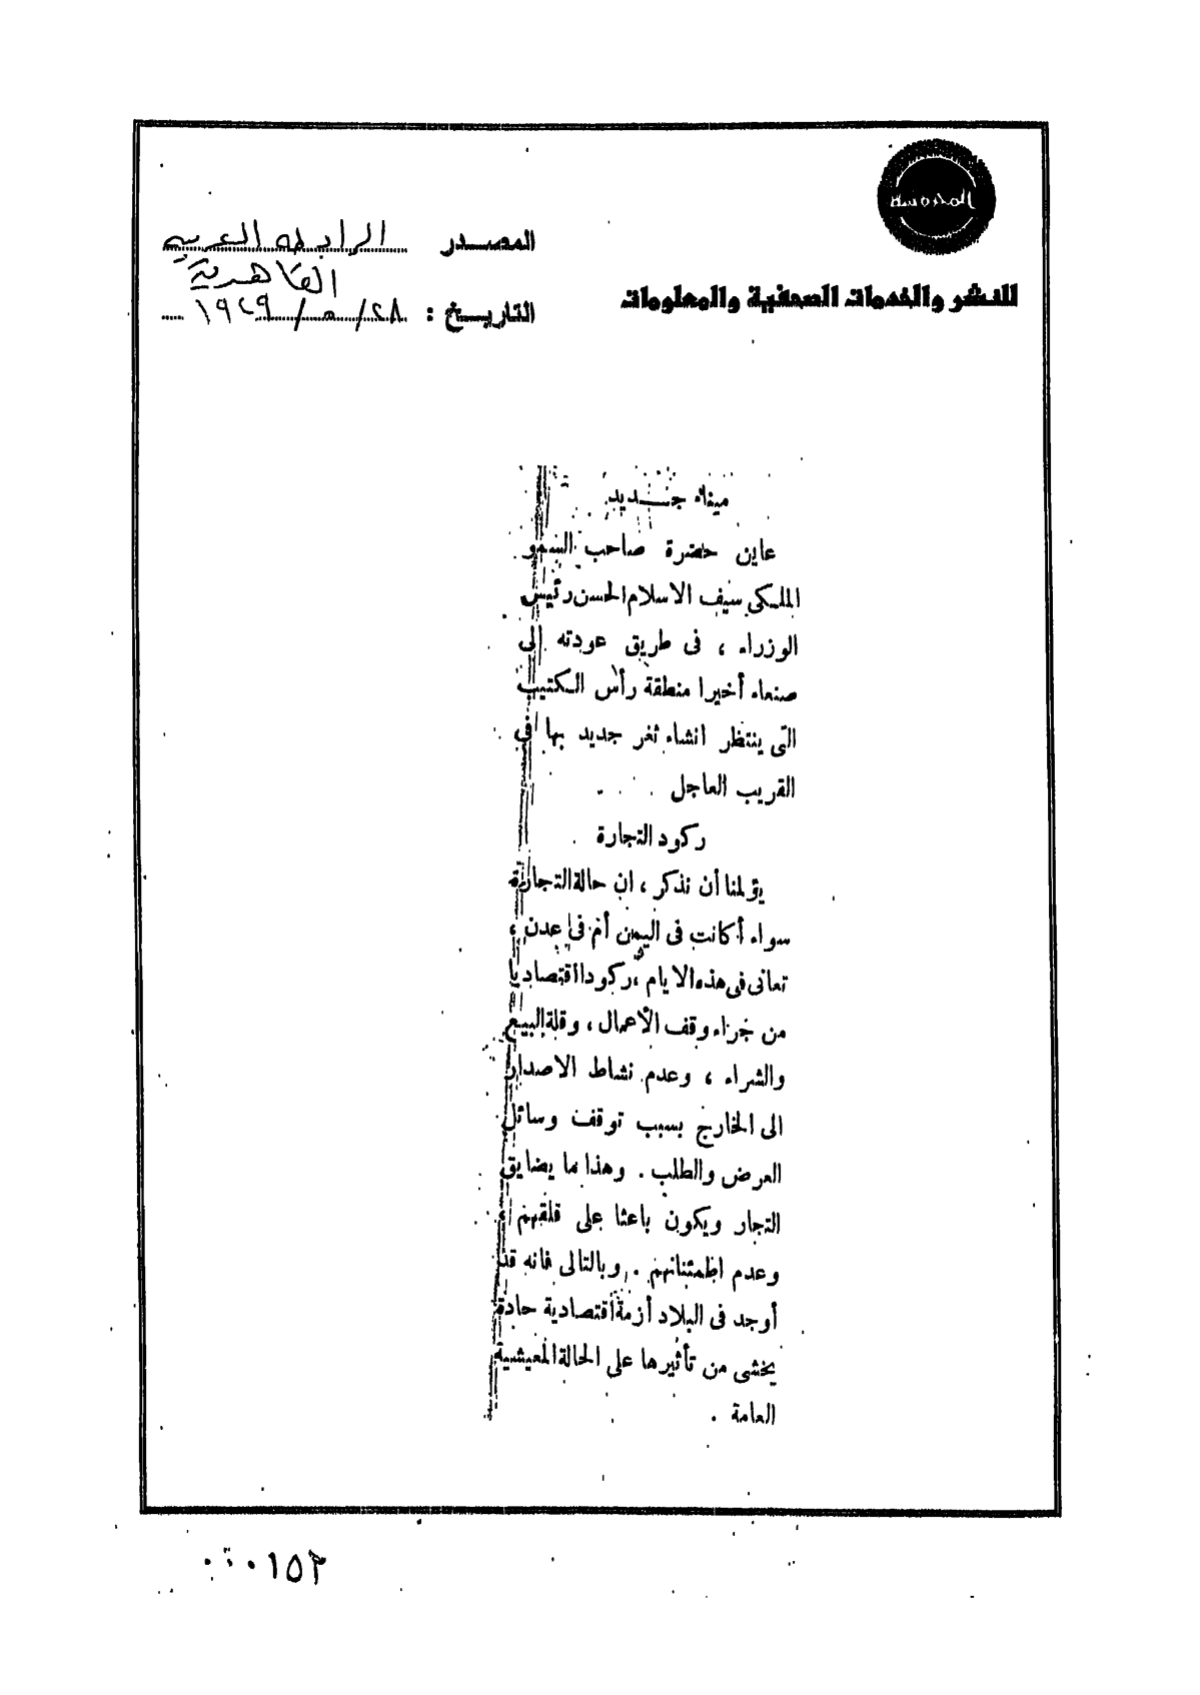 المحروسة
للنشر والخدمات الصحفية والمعلومات
المصدر الرابطة العربية
القاهرية
التاريخ : ٢٨/ ٥ / ١٩٤٩
ميناء جديد
عاين حضرة صاحب السمو
الملكى سيف الاسلام الحسن رئيس
الوزراء ، فى طريق عودته الى
صنعاء أخيرا منطقة رأس الكتيب
التى ينتظر انشاء ثغر جديد بها فى
القريب العاجل
ركود التجارة
يؤلمنا أن نذكر ، ان حالة التجارة
سواء أكانت فى اليمن أم فى عدن ،
تعانى فى هذه الايام ، ركودا اقتصاديا
من جراء وقف الأعمال ، وقلة البيع
والشراء ، وعدم نشاط الاصدار
الى الخارج بسبب توقف وسائل
العرض والطلب . وهذا ما يضايق
التجار ويكون باعثا على قلقهم ،
وعدم اطمئنانهم . وبالتالى فانه قد
أوجد فى البلاد أزمة اقتصادية حادة
يخشى من تأثيرها على الحالة المعيشية
العامة .